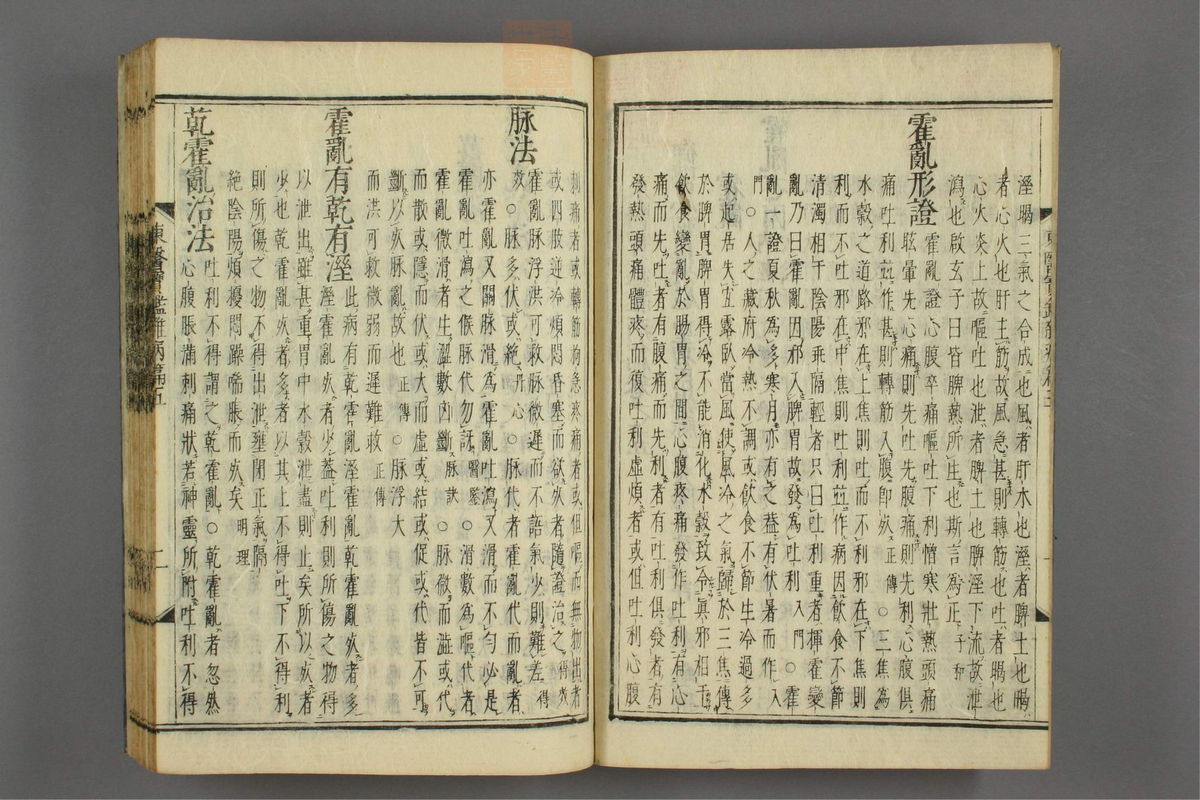 溼暍三氣之合成也風者肝木也溼者脾土也暍
者心火也肝主筋故風急甚則轉筋也吐者暍也
心火炎上故嘔吐也泄者脾土也脾溼下流故泄
瀉也啟玄子曰皆脾熱所生也斯言為正子和
霍亂形證
霍亂證心腹卒痛嘔吐下利憎寒壯熱頭痛
眩暈先心痛則先吐先腹痛則先利心腹俱
痛吐利竝作甚則轉筋入腹卽死正傳○三焦為
水穀之道路邪在上焦則吐而不利邪在下焦則
利而不吐邪在中焦則吐利竝作病因飮食不節
清濁相干陰陽乖隔輕者只曰吐利重者揮霍變
亂乃曰霍亂因邪入脾胃故發為吐利入門○霍
亂一證夏秋為多寒月亦有之葢有伏暑而作入
門○人之藏府冷熱不調或飮食不節生冷過多
或起居失宜露臥當風使風冷之氣歸於三焦傳
於脾胃脾胃得冷不能消化水穀致令眞邪相干
飮食變亂於腸胃之間心腹疼痛發作吐利有心
痛而先吐者有腹痛而先利者有吐利俱發者有
發熱頭痛體疼而復吐利虛煩者或但吐利心腹
刺痛者或轉筋拘急疼痛者或但嘔而無物出者
或四肢逆冷煩悶昏塞而欲死者隨證治之得效
脉法
霍亂脉浮洪可救脉微遲而不語氣少則難差得
效○脉多伏或絶丹心○脉代者霍亂代而亂者
亦霍亂又關脉滑為霍亂吐瀉又滑而不勻必是
霍亂吐瀉之候脉代勿訝醫鑒○滑數為嘔代者
霍亂微滑者生澀數凶斷脉訣○脉微而澁或代
而散或隱而伏或大而虛或結或促或代皆不可
斷以死脉亂故也正傳○脉浮大
而洪可救微弱而遲難救正傳
霍亂有乾有溼
此病有乾霍亂溼霍亂乾霍亂死者多
溼霍亂死者少葢吐利則所傷之物得
以泄出雖甚重胃中水穀泄盡則止矣所以死者
少也乾霍亂死者多者以其上不得吐下不得利
則所傷之物不得出泄壅閉正氣隔
絶陰陽煩擾悶躁喘脹而死矣明理
乾霍亂治法
吐利不得謂之乾霍亂○乾霍亂者忽然
心腹脹滿刺痛狀若神靈所附吐利不得
東醫寶鑑雜病篇五
二